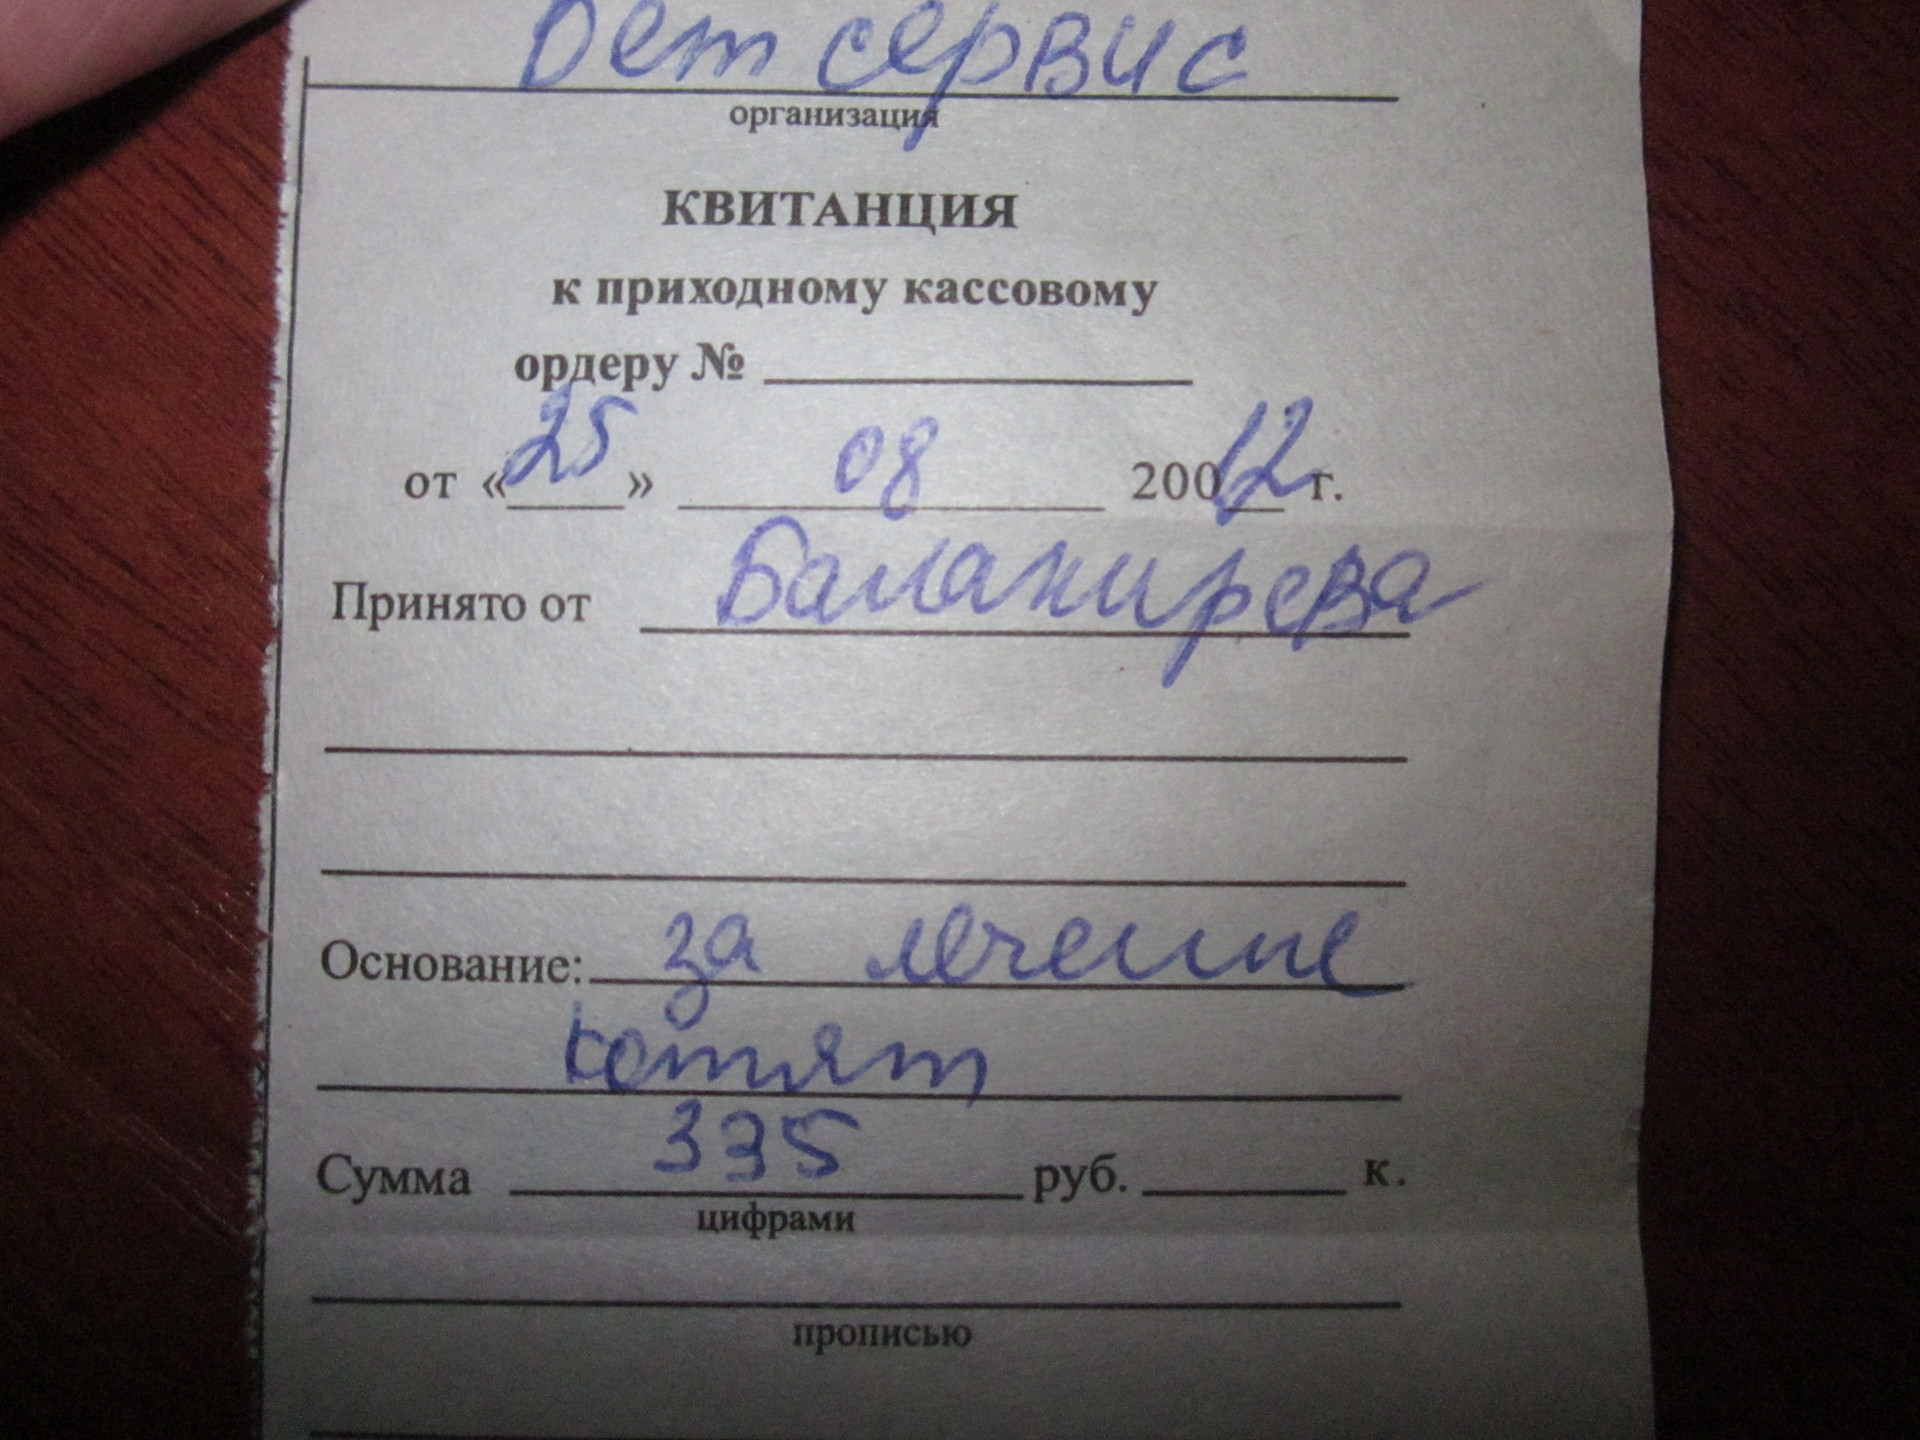 Вет сервис
организация
КВИТАНЦИЯ
к приходному кассовому
ордеру №
от «25» 08 20012 г.
Принято от Балакирева
Основание: за лечение
котят
Сумма 335 руб. к.
цифрами
прописью